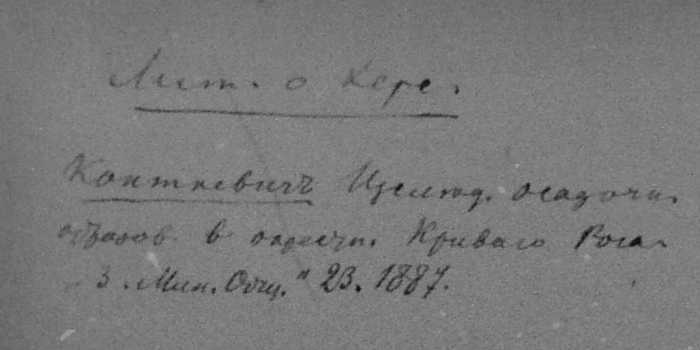 Лит. о Кере.
Конткевичъ Изслѣд. осадочн.
образов. в окрестн. Криваго Рога.
"З. Мин. Общ." 23. 1887.